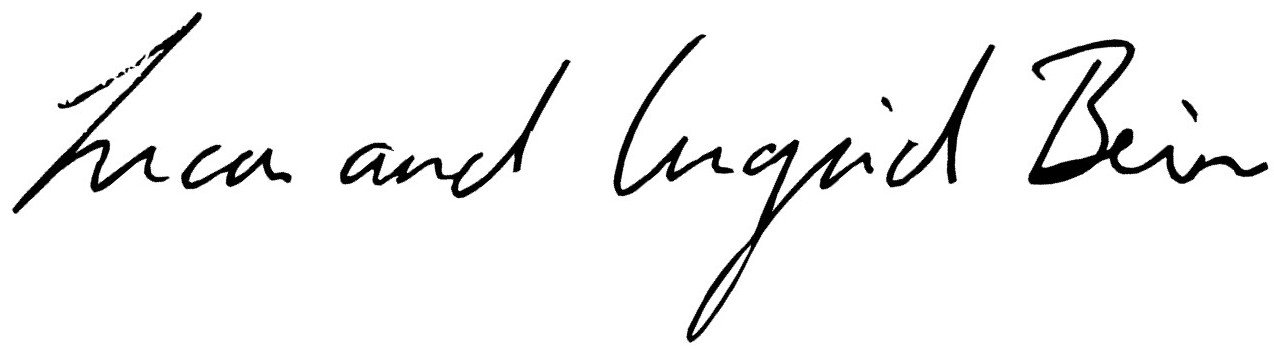 Lucas and Ingrid Bein